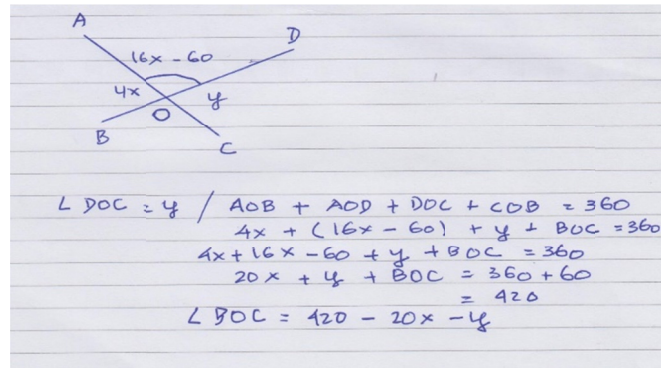 A
D
16x - 60
4x
y
O
B
C
∠ DOC = y / AOB + AOD + DOC + COB = 360
4x + (16x - 60) + y + BOC = 360
4x + 16x - 60 + y + BOC = 360
20x + y + BOC = 360 + 60
= 420
∠ BOC = 420 - 20x - y